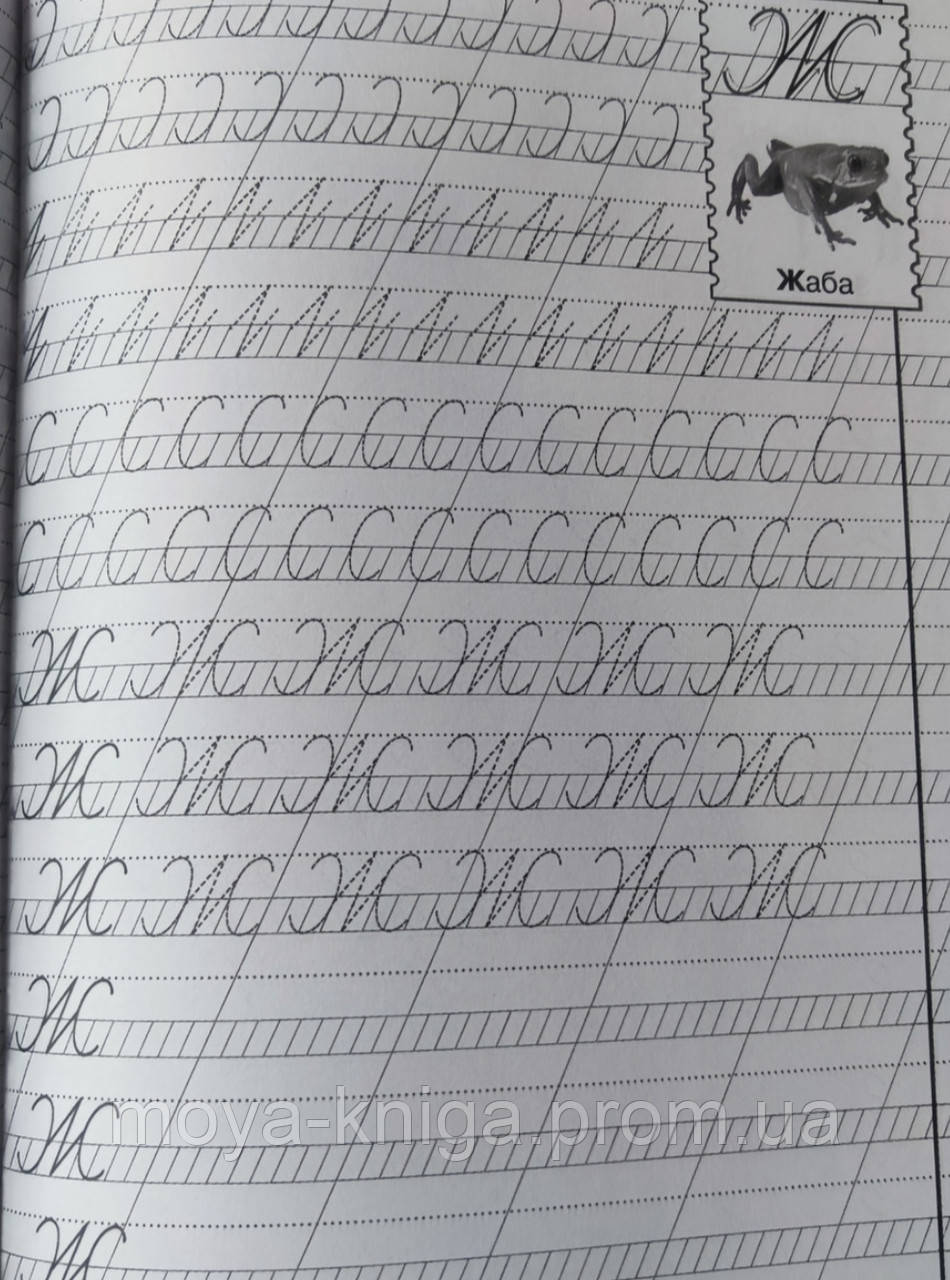 Ж
Жаба
Ж Ж Ж Ж Ж Ж
Ж Ж Ж Ж Ж Ж
Ж Ж Ж Ж Ж Ж
Ж
Ж
moya-kniga.prom.ua
Ж